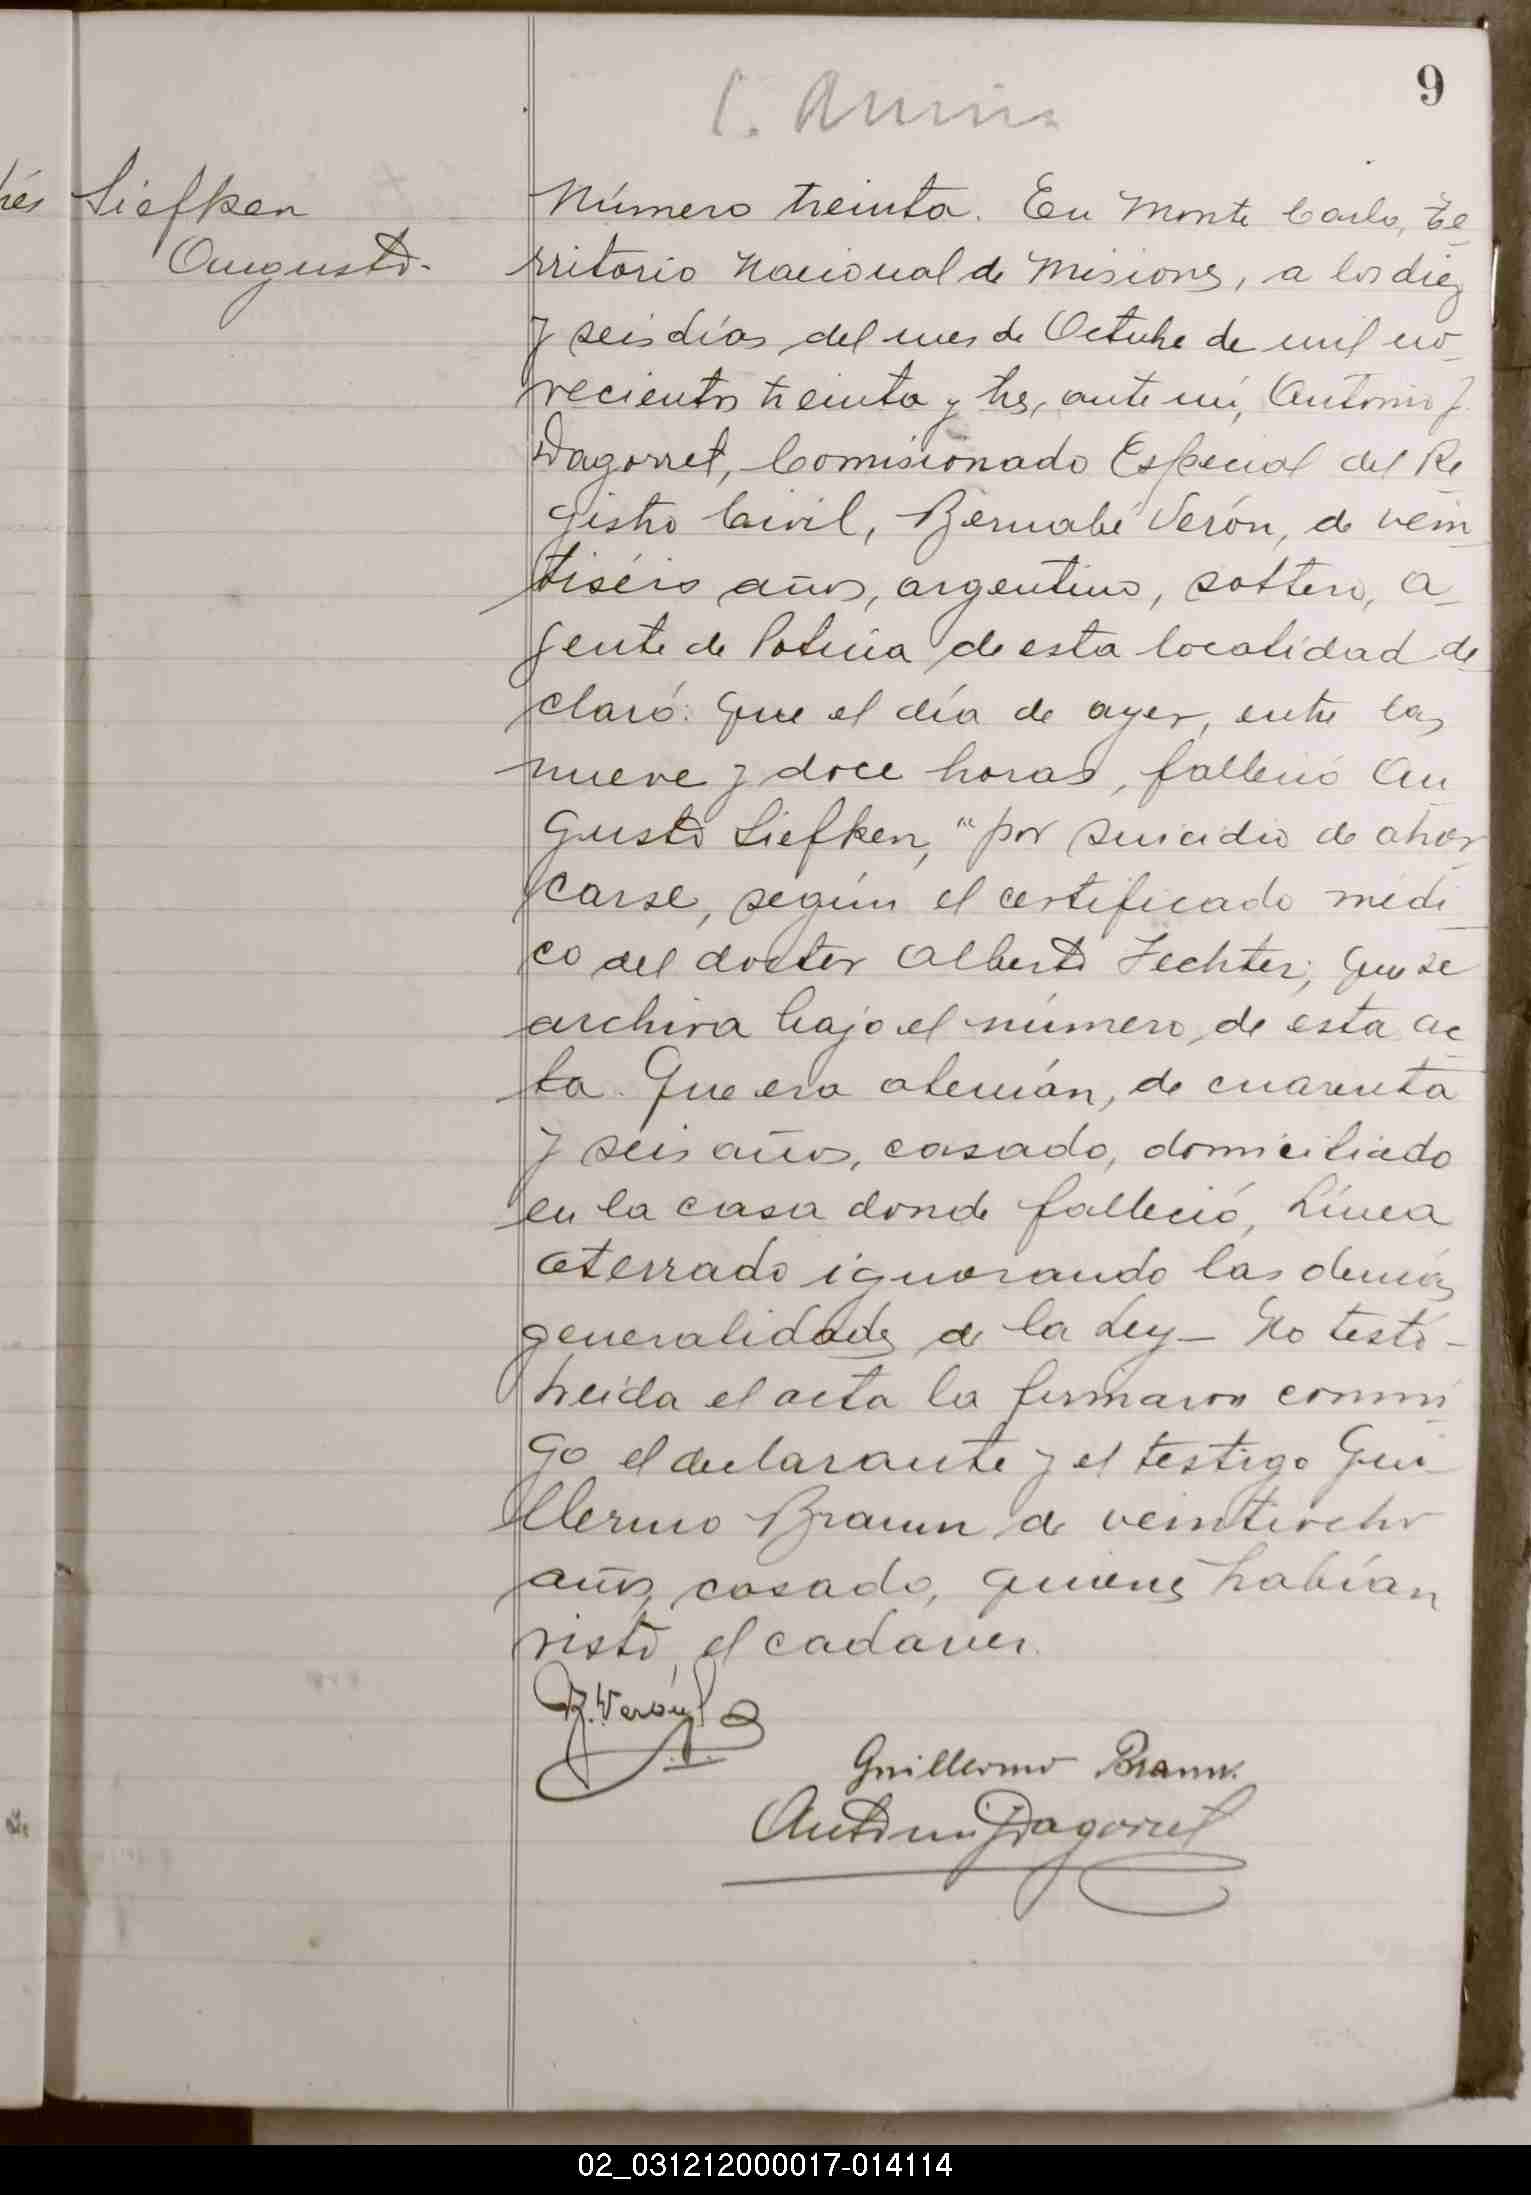 9
Siefken
Augusto.
Número treinta. En Monte Carlo, Te
rritorio Nacional de Misiones, a los diez
y seis días del mes de Octubre de mil no
vecientos treinta y tres, ante mí, Antonio J.
Dagorret, Comisionado Especial del Re
gistro Civil, Bernabé Verón, de vein
tiséis años, argentino, soltero, a
gente de Policia de esta localidad de
claró: Que el día de ayer, entre las
nueve y doce horas, falleció Au
gusto Siefken, "por suicidio de ahor
carse, según el certificado médi
co del doctor Alberto Fechter, que se
archiva bajo el número de esta ac
ta. Que era alemán, de cuarenta
y seis años, casado, domiciliado
en la casa donde falleció, Línea
aterrado ignorando las demás
generalidades de la Ley— No testó—
Leida el acta la firmaron conmi
go el declarante y el testigo Gui
llermo Braun de veintiocho
años, casado, quienes habían
visto el cadaver.
B. Verón
Guillermo Braun.
Antonio J Dagorret
02_031212000017-014114